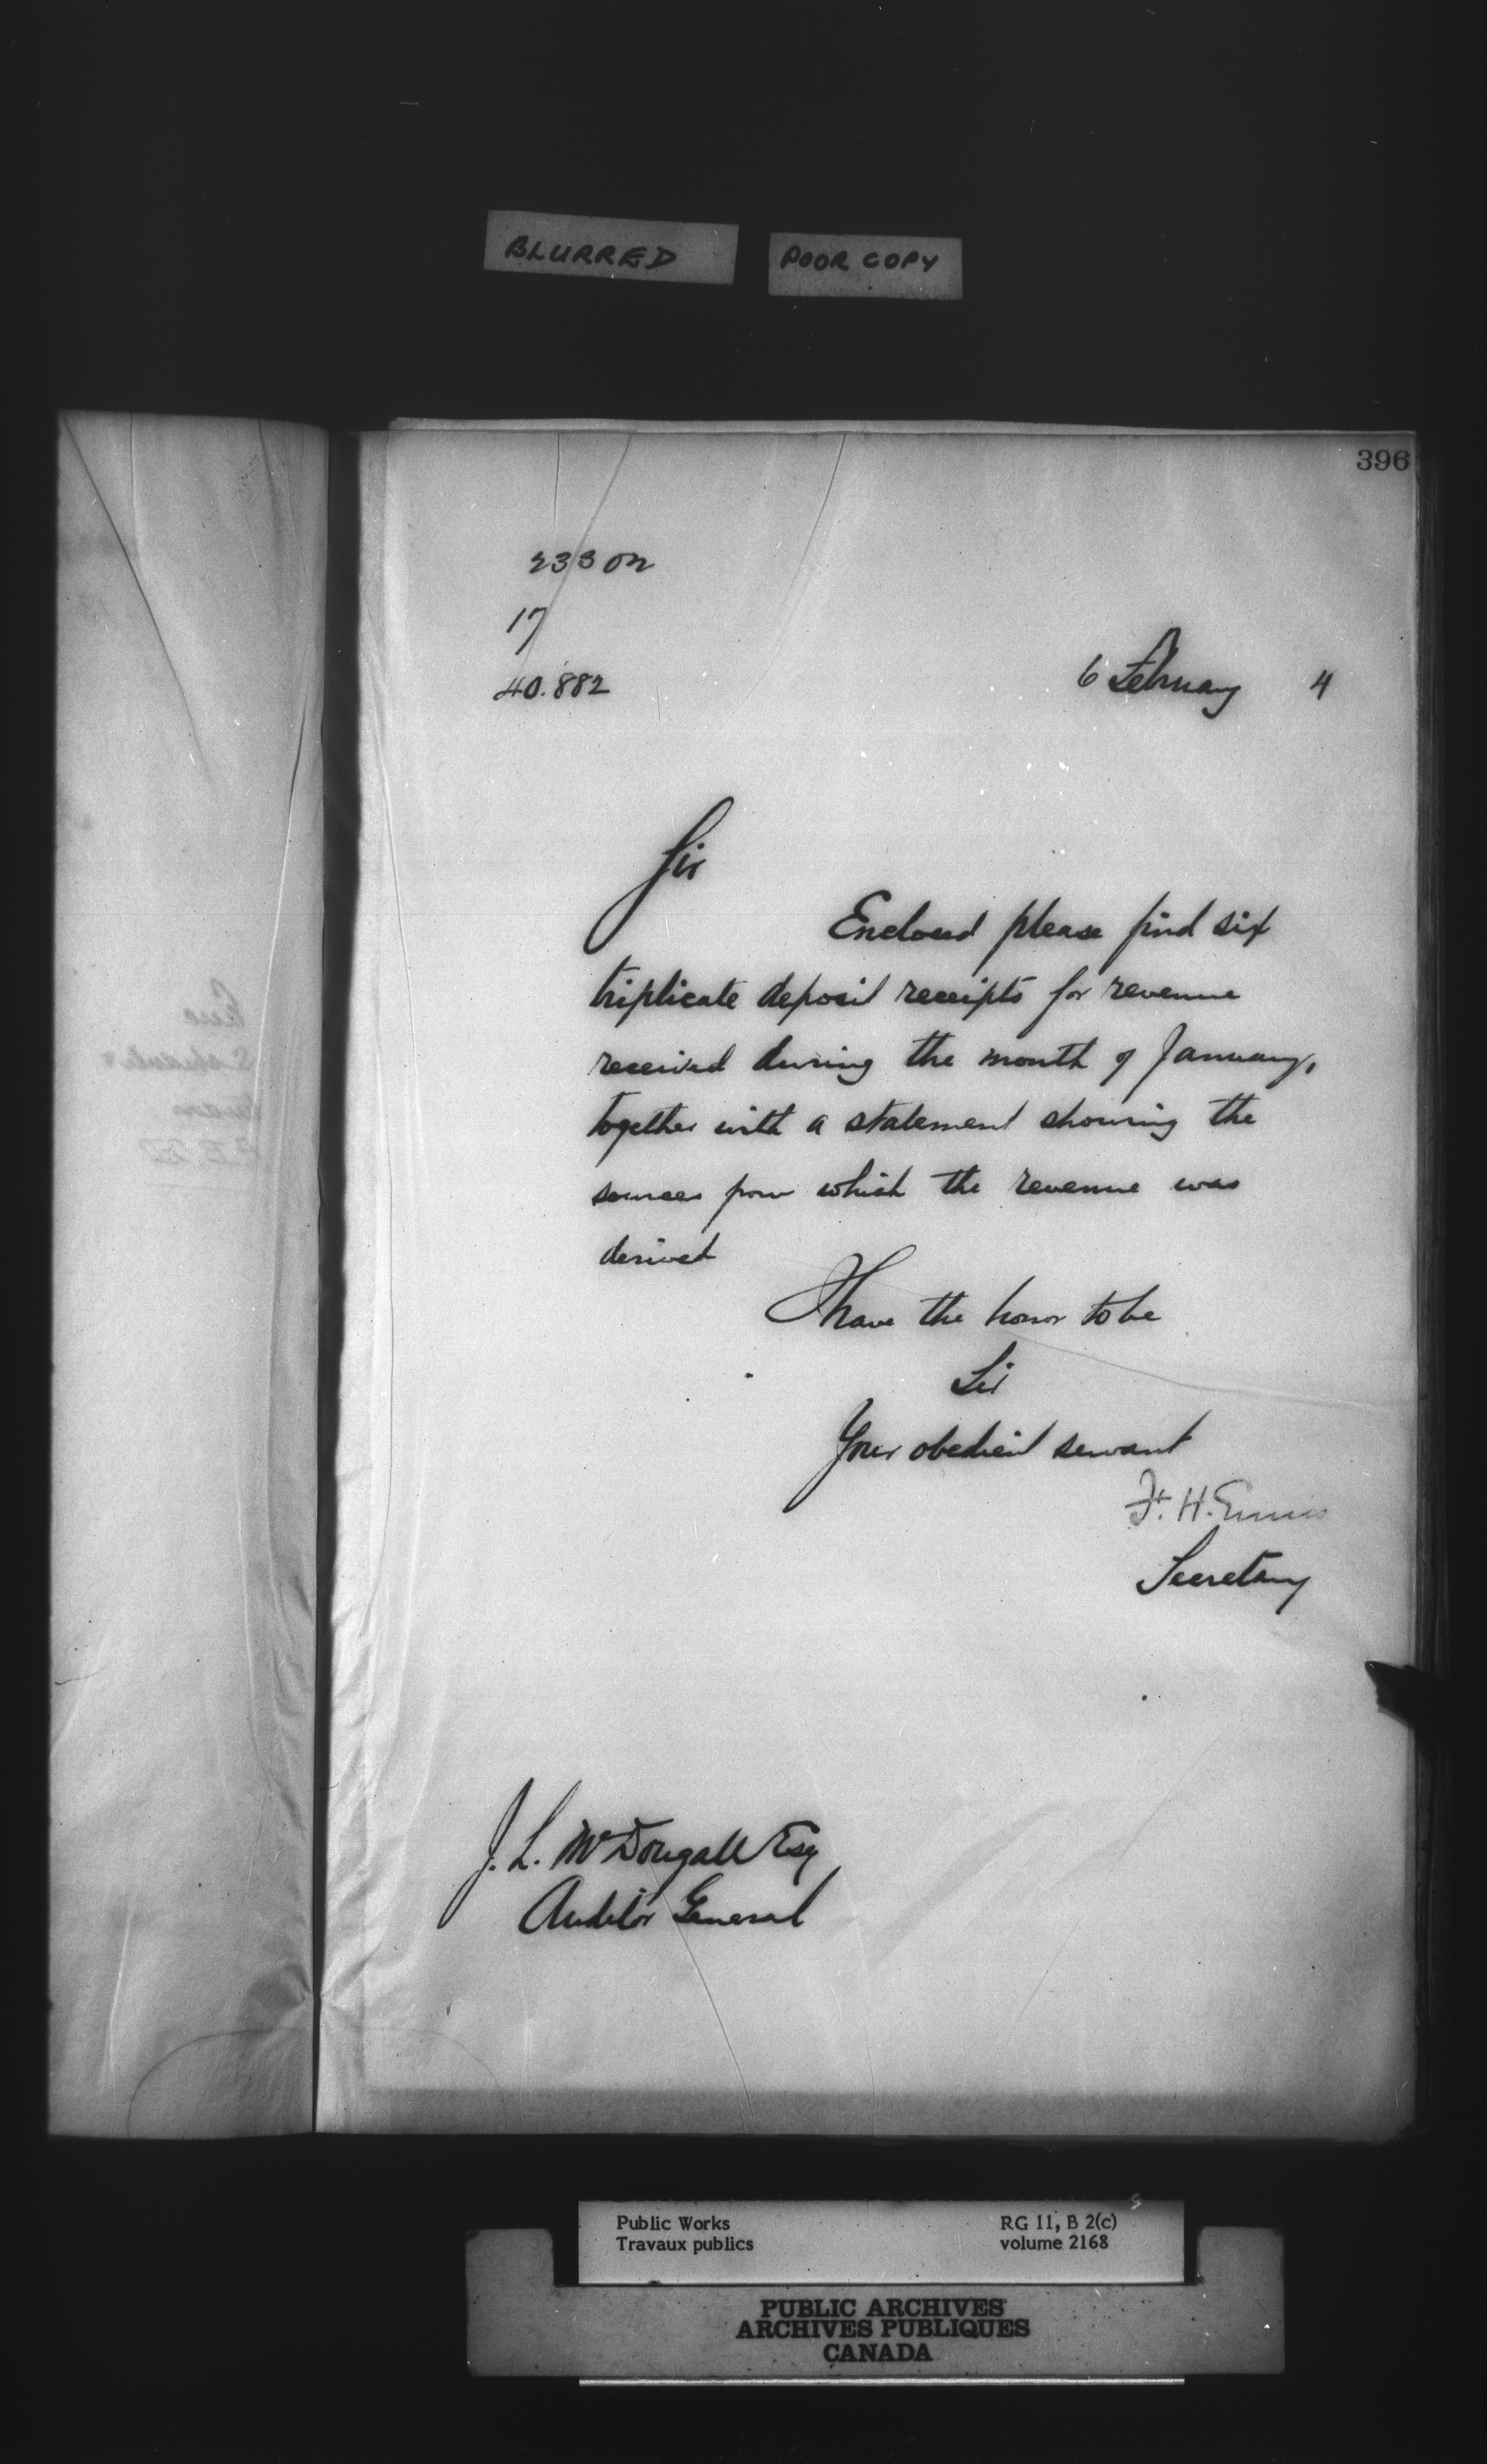 BLURRED
POOR COPY
396
233 on
17
40.882
6 February 4
Sir
Enclosed please find six
triplicate deposit receipts for revenue
received during the month of January,
together with a statement showing the
sources from which the revenue was
derived
I have the honor to be
Sir
Your obedient servant
F. H. Ennis
Secretary
J. L. McDougall Esq
Auditor General
Public Works
Travaux publics
RG 11, B 2(c)
volume 2168
PUBLIC ARCHIVES
ARCHIVES PUBLIQUES
CANADA